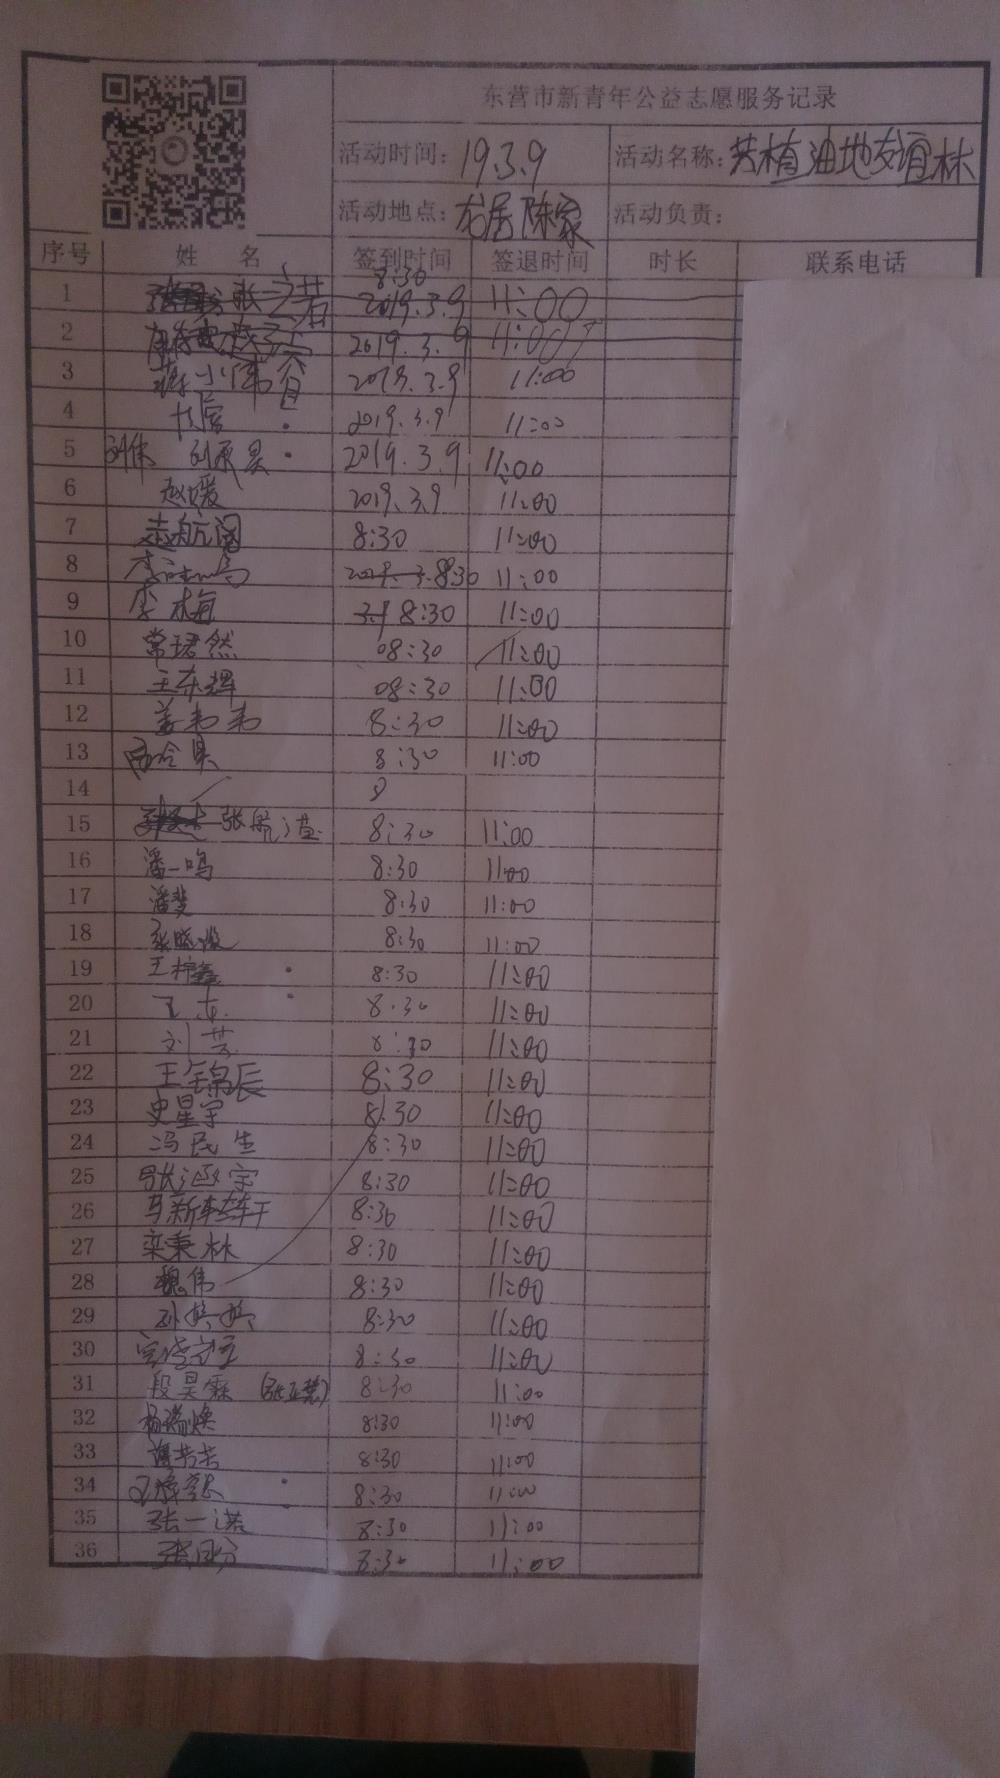 东营市新青年公益志愿服务记录
活动时间: 19.3.9 活动名称: 共植油地友谊林
活动地点: 龙居陈家 活动负责:
序号 姓 名 签到时间 签退时间 时长 联系电话
8:30
1 张 2019.3.9 11:00
2 2019.3.9 11:00
3 蒋小伟 2019.3.9 11:00
4 2019.3.9 11:00
5 刘伟 刘承昊 2019.3.9 11:00
6 赵媛 2019.3.9 11:00
7 赵航阅 8:30 11:00
8 李 8:30 11:00
9 李梅 8:30 11:00
10 常珺然 08:30 11:00
11 王东辉 08:30 11:00
12 姜韦韦 8:30 11:00
13 8:30 11:00
14
15 张航 8:30 11:00
16 潘一鸣 8:30 11:00
17 潘斐 8:30 11:00
18 张晓 8:30 11:00
19 王梓鑫 8:30 11:00
20 王东 8:30 11:00
21 刘芸 8:30 11:00
22 王锦辰 8:30 11:00
23 史星宇 8:30 11:00
24 冯民生 8:30 11:00
25 张涵宇 8:30 11:00
26 马新轩 8:30 11:00
27 栾秉林 8:30 11:00
28 魏伟 8:30 11:00
29 孙婷婷 8:30 11:00
30 8:30 11:00
31 段昊霖 8:30 11:00
32 杨瑞焕 8:30 11:00
33 8:30 11:00
34 8:30 11:00
35 张一诺 8:30 11:00
36 张 8:30 11:00